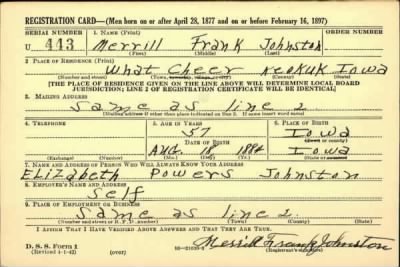 REGISTRATION CARD—(Men born on or after April 28, 1877 and on or before February 16, 1897)
SERIAL NUMBER 1. NAME (Print) ORDER NUMBER
U 443 Merrill Frank Johnston
(First) (Middle) (Last)
2. PLACE OF RESIDENCE (Print)
What Cheer Keokuk Iowa
(Number and street) (Town, township, village, or city) (County) (State)
[THE PLACE OF RESIDENCE GIVEN ON THE LINE ABOVE WILL DETERMINE LOCAL BOARD
JURISDICTION; LINE 2 OF REGISTRATION CERTIFICATE WILL BE IDENTICAL]
3. MAILING ADDRESS
Same as line 2
[Mailing address if other than place indicated on line 2. If same insert word same]
4. TELEPHONE 5. AGE IN YEARS 6. PLACE OF BIRTH
57 Iowa
DATE OF BIRTH (Town or county)
Aug. 18 1884 Iowa
(Exchange) (Number) (Mo.) (Day) (Yr.) (State or country)
7. NAME AND ADDRESS OF PERSON WHO WILL ALWAYS KNOW YOUR ADDRESS
Elizabeth Powers Johnston
8. EMPLOYER'S NAME AND ADDRESS
Self
9. PLACE OF EMPLOYMENT OR BUSINESS
Same as line 2.
(Number and street or R. F. D. number) (Town) (County) (State)
I AFFIRM THAT I HAVE VERIFIED ABOVE ANSWERS AND THAT THEY ARE TRUE.
D. S. S. Form 1
(Revised 4-1-42) (over) Merrill Frank Johnston
(Registrant's signature)